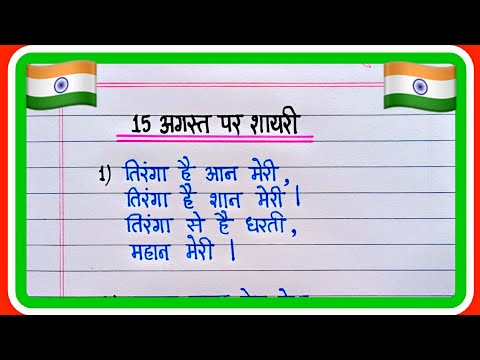 15 अगस्त पर शायरी
1) तिरंगा है आन मेरी,
तिरंगा है शान मेरी।
तिरंगा से है धरती,
महान मेरी।